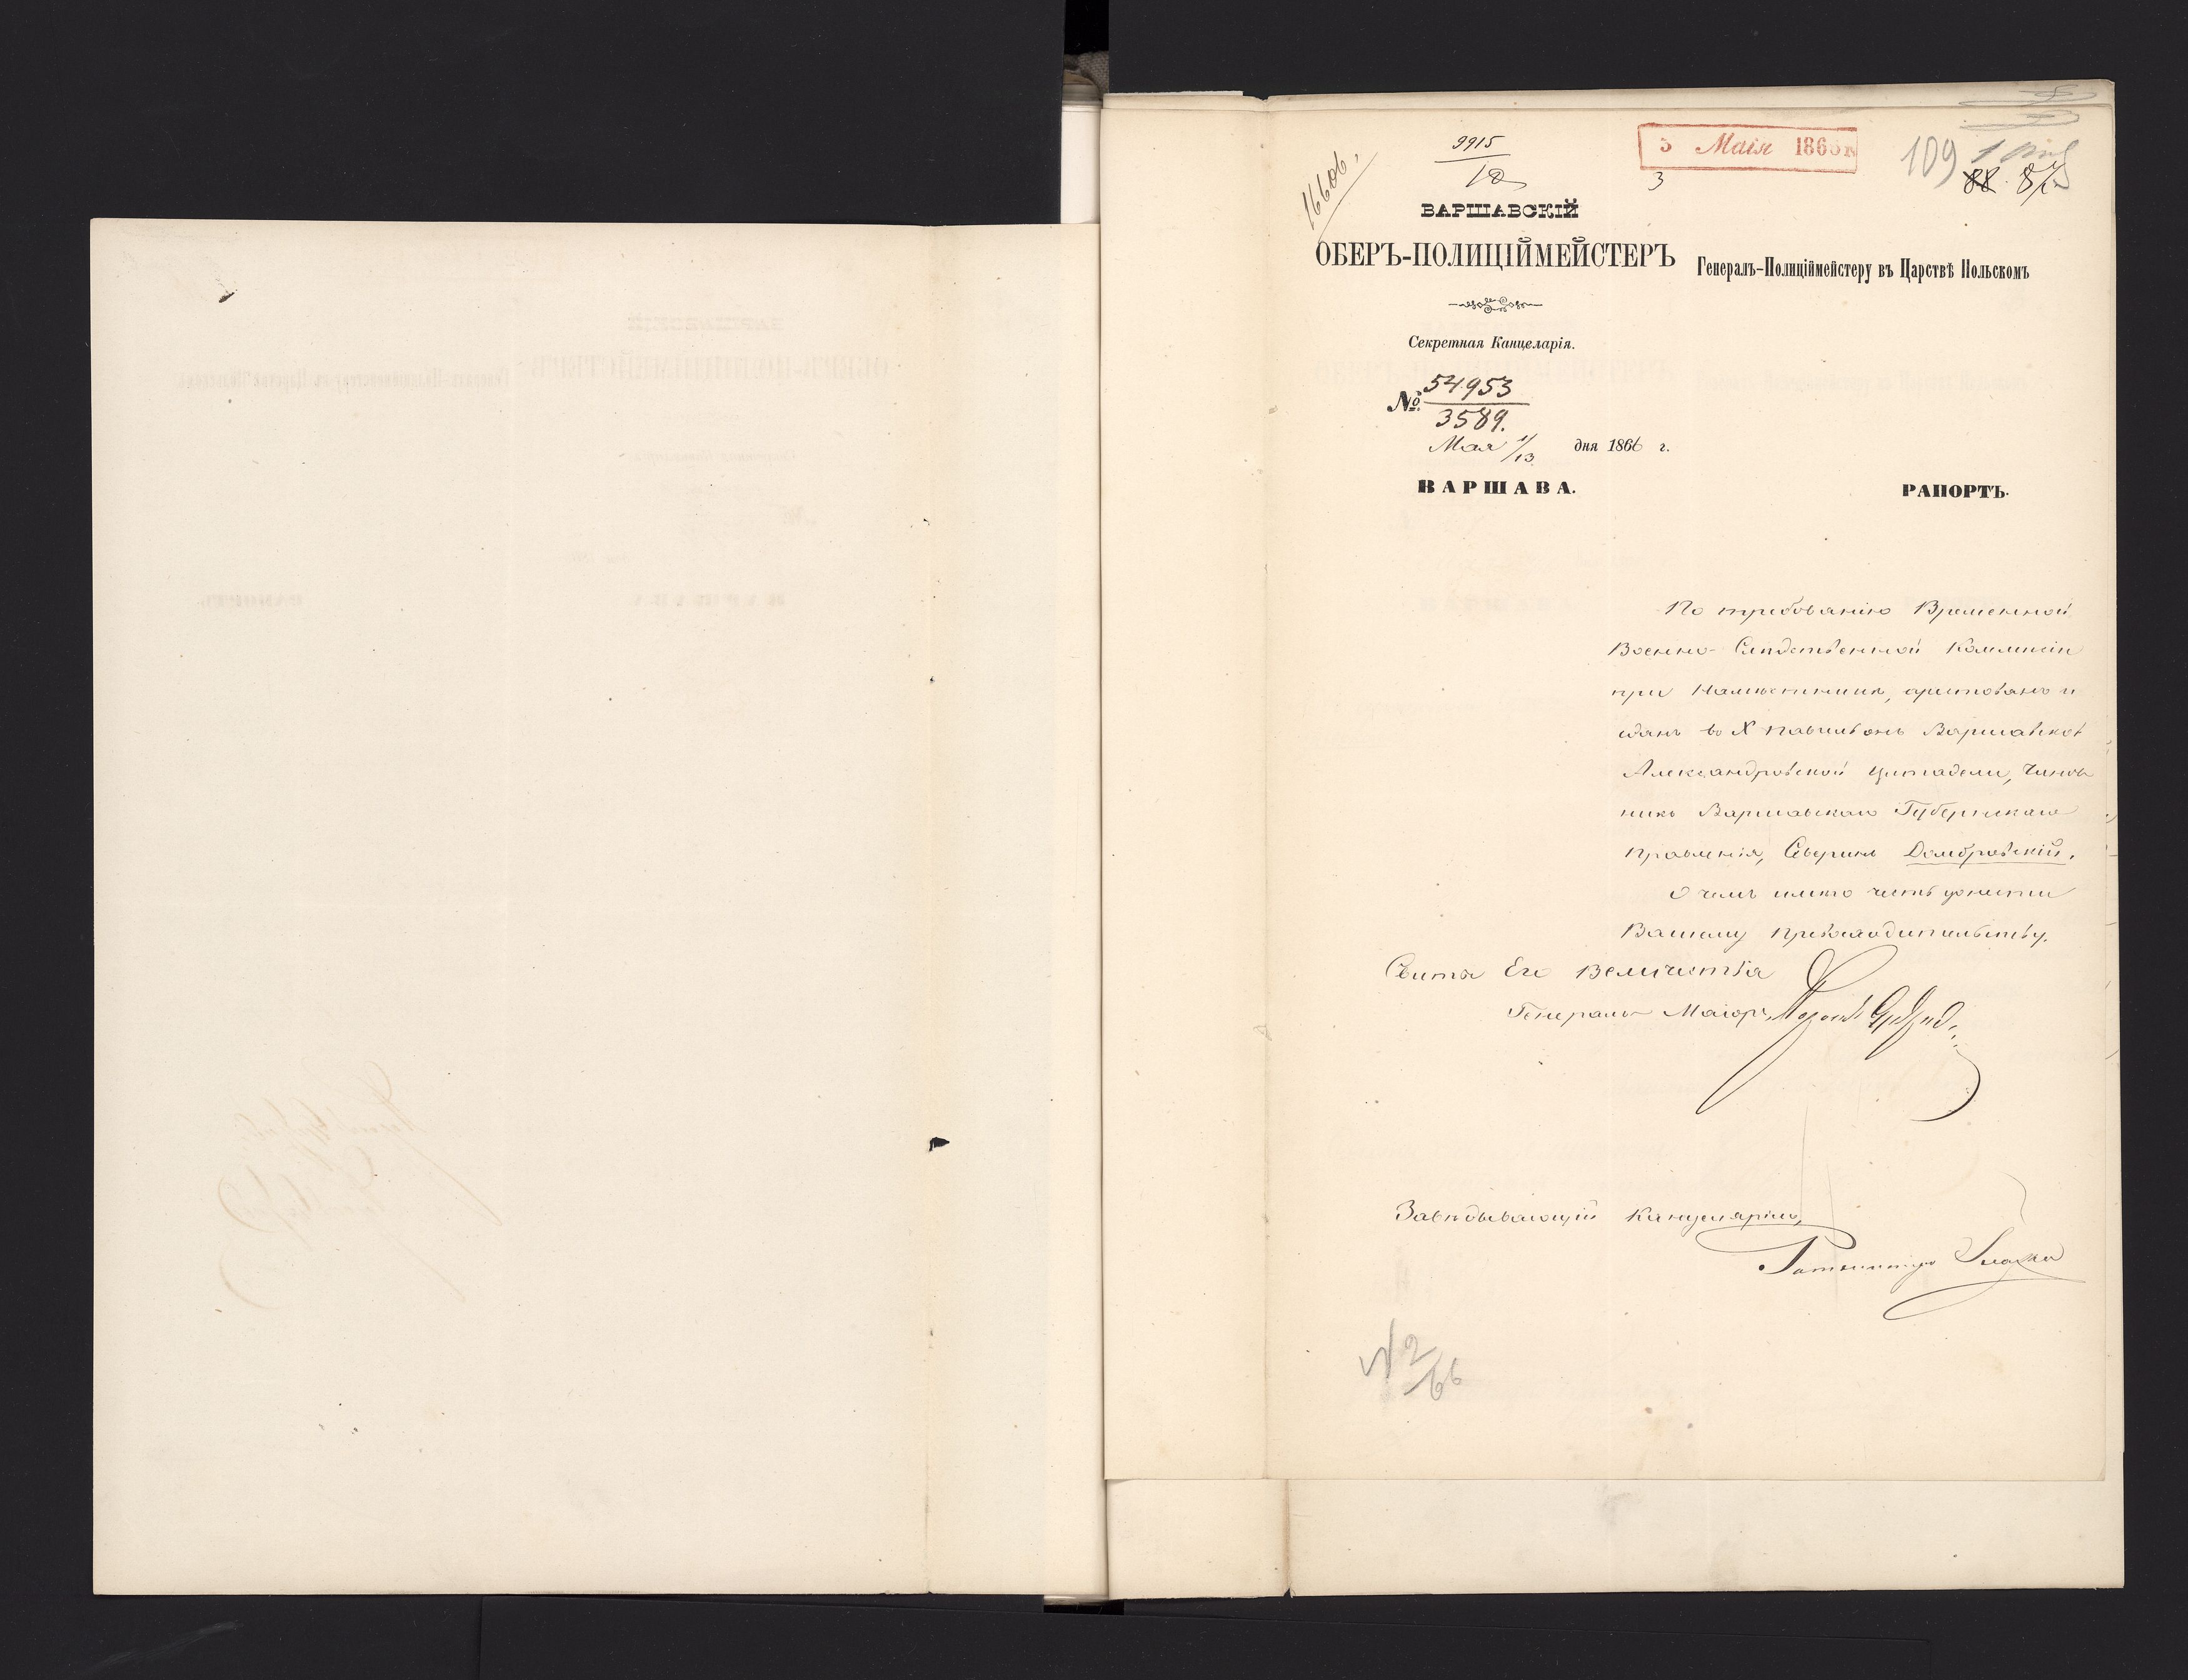 16606.
9915
12
3 Маія 1866 г.
3
109
88 87
ВАРШАВСКІЙ
ОБЕРЪ-ПОЛИЦІЙМЕЙСТЕРЪ
Генералъ-Полиціймейстеру въ Царствѣ Польскомъ
Секретная Канцелярія.
№ 54953
3589.
Мая 1/13 дня 1866 г.
ВАРШАВА.
РАПОРТЪ.
По требованію Временной
Военно-Слѣдственной Коммисіи
при Намѣстникѣ, арестованъ и
сданъ въ X павильонъ Варшавской
Александровской Цитадели, Чинов
никъ Варшавскаго Губернскаго
Правленія, Северинъ Домбровскій.
О чемъ имѣю честь донести
Вашему Превосходительству.
Свиты Его Величества
Генералъ Маіоръ, Баронъ Фредерикс
Завѣдывающій Канцеляріею,
Ротмистръ
№ 2/66